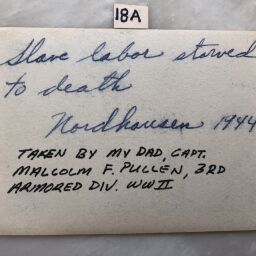 18A
Slave labor starved
to death
Nordhausen 1944
TAKEN BY MY DAD, CAPT.
MALCOLM F. PULLEN, 3RD
ARMORED DIV. WWII